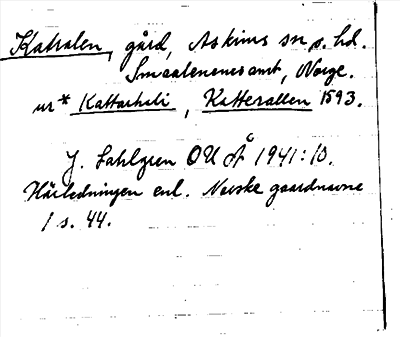 Katralen, gård, Askims sn o. hd.
Smaalenenes amt, Norge.
ur * Kattarheli, Katterallen 1593.
J. Sahlgren OUÅ 1941:10.
Härledningen enl. Norske gaardnavne
1 s. 44.